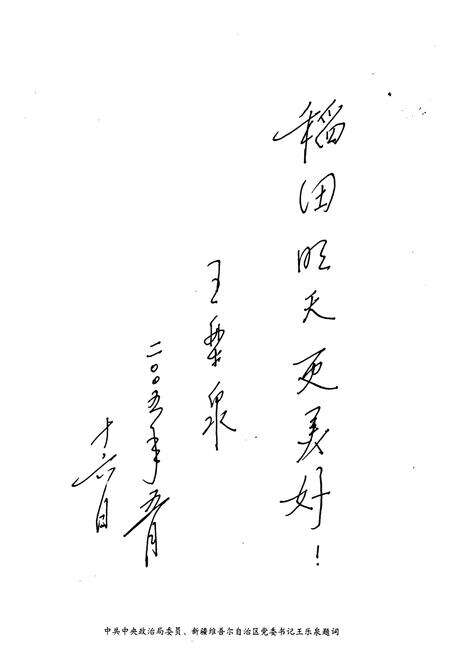 稻田明天更美好！
王乐泉
二〇〇五年五月
十六日
中共中央政治局委员、新疆维吾尔自治区党委书记王乐泉题词